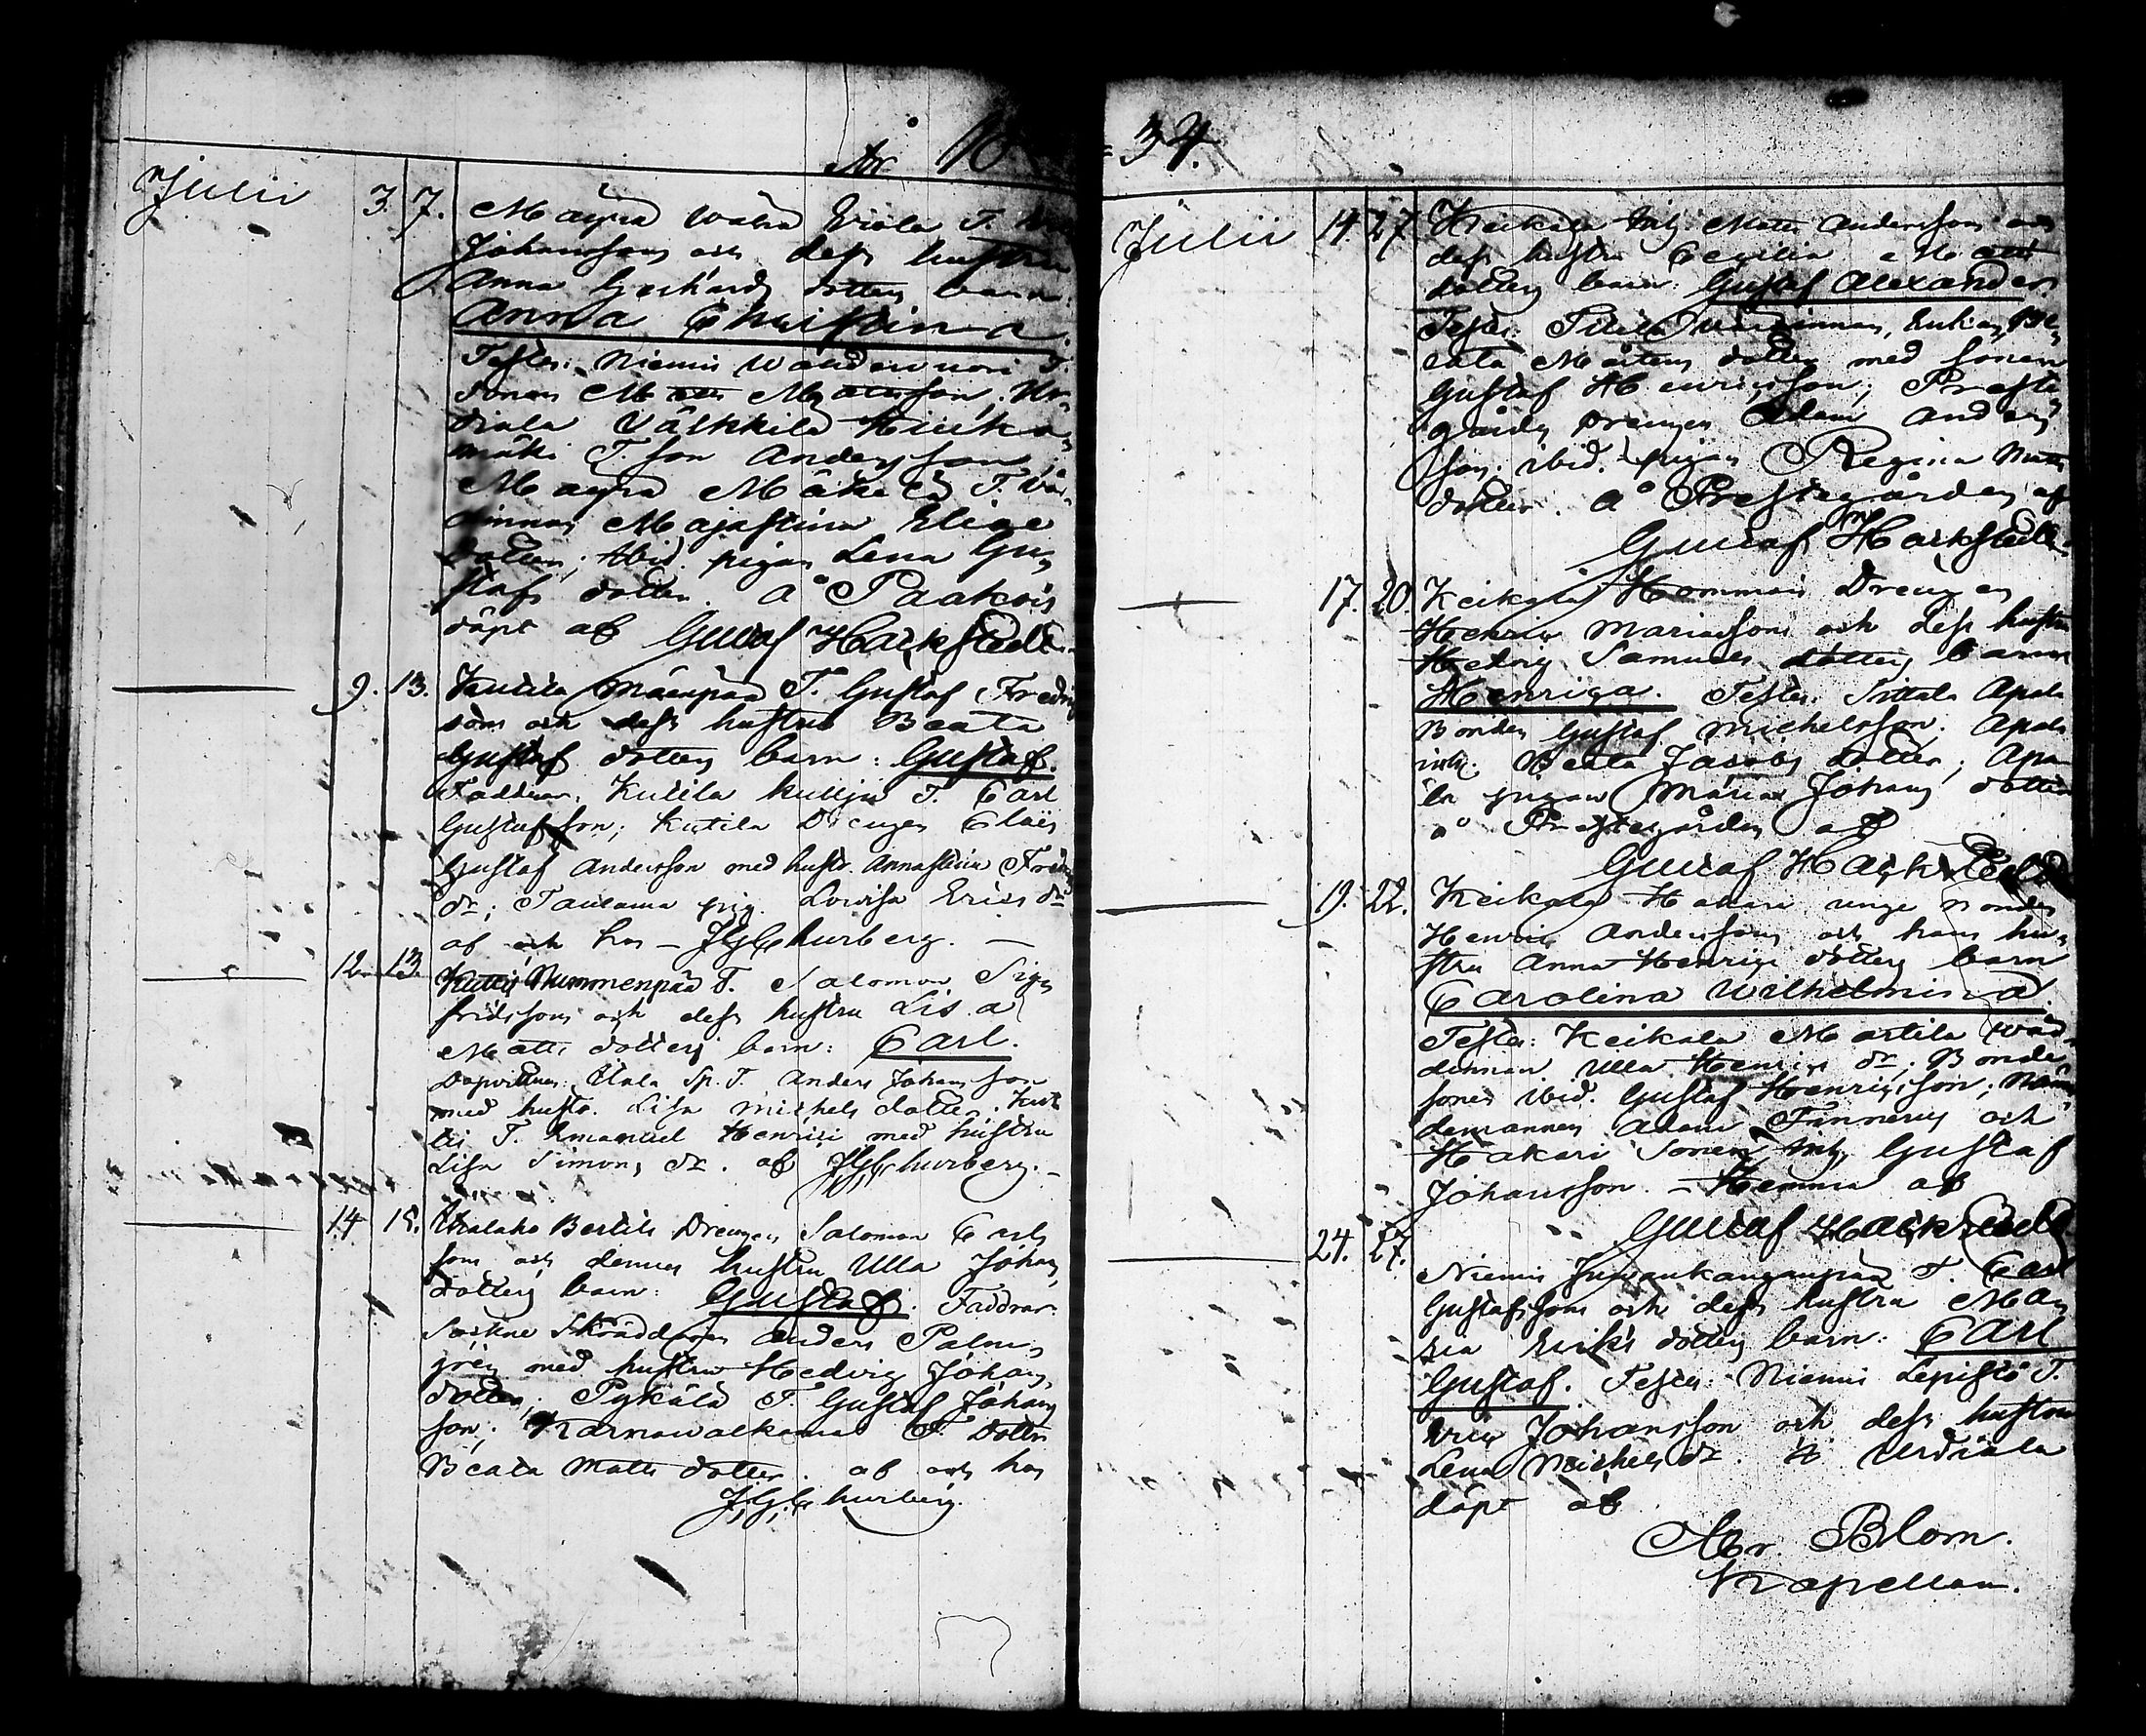 År 18
Julii 3. 7. Mäyrä Wähä Eriola T.
Johansson och dess hustru
Anna Gerhards dotters barn:
Anna Christina.
Testes: Niemis Wanderuori T.
sonen Matts Mattsson, Ur-
diala Välkkilä
mäki T. son Andersson
Mäyrä Mäkelä T. Vär-
dinnan Majastina Elige
dotter; ibid. pigan Lena Gu-
stafs dotter. å Paakois
döpt af Gustaf Hackstedt.
9. 13. Kutila Mäenpää T. Gustaf Fredrics
son och dess hustru Beata
Gustafs dotters barn: Gustaf.
Faddrar. Kutila Kuljju T. Carl
Gustafsson; Kutila Drengen Claës
Gustaf Andersson med hustr. Annastina Fredrics
dr; Taulama pig. Lovisa Erics dr
af och hos - J.G. Churberg. -
12. 13. Kutis Nummenpää T. Salomon Sig-
fridsson och dess hustru Lisa
Matts dotters barn: Carl.
Dopvittnen: Uala Sp. T. Anders Johansson
med hustr. Lisa Michels dotter. Kut
tis T. Emanuel Henrici med hustru
Lisa Simons dr. af J.G. Churberg. -
14 15. Uralaho Bertils Drengen Salomon Carls
son och dennes hustru Ulla Johans
dotters barn: Gustaf. Faddrar.
Sockne Skräddaren Anders Palm-
grén med hustru Hedvig Johans
dotter; Pykälä T. Gustaf Johans
son; Karnawalkama T. dotter
Beata Matts dotter. af och hos
J.G. Churberg.
34.
Julii 14. 27. Keikala Inh. Matts Andersson och
dess hustru Cecilia Matts
dotters barn: Gustaf Alexander.
Testes: Värdinnan, Enkan Be-
ata Mårtens dotter med sonen
Gustaf Henricsson; Preste
gårds Drengen Adam Anders
son. ibid. pigan Regina Matts
dotter. å Prestegården af
Gustaf Hackstedt.
17. 20. Keikala Hommais Drengen
Henric Mariasson och dess hustru
Hedvig Samuels dotters barn
Henrica. Testes: Sittala Apala
Bonden Gustaf Michelsson; Apala
inh. Beata Jacobs dotter; Apa
la pigan Maria Johans dotter
å Prestegården af
Gustaf Hackstedt
19. 22. Keikala Hakari unge Bonden
Henric Andersson och hans hu-
stru Anna Henrics dotters barn
Carolina Wilhelmina.
Testes: Keikala Martila Wär-
dinnan Ulla Henrics dr; Bonde
sonen ibid. Gustaf Henricsson; Näm-
demannen Adam Tännerus och
Hakari Sonen Inh. Gustaf
Johansson. - Hemma af
Gustaf Hackstedt
24. 27. Niemis Juwankangaanpää T. Carl
Gustafsson och dess hustru Ma-
ria Eriks dotters barn: Carl
Gustaf. Testes: Niemis Lepistö T.
Eric Johansson och dess hustru
Lena Michels dr. å Urdiala
döpt af
Abr. Blom.
Kapellan.